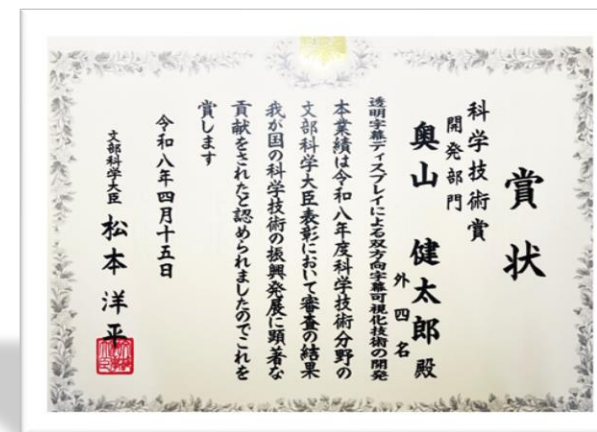 賞状
科学技術賞
開発部門
奥山 健太郎 殿
外四名
透明字幕ディスプレイによる双方向字幕可視化技術の開発
本業績は令和八年度科学技術分野の
文部科学大臣表彰において審査の結果
我が国の科学技術の振興発展に顕著な
貢献をされたと認められましたのでこれを
賞します
令和八年四月十五日
文部科学大臣 松本 洋平